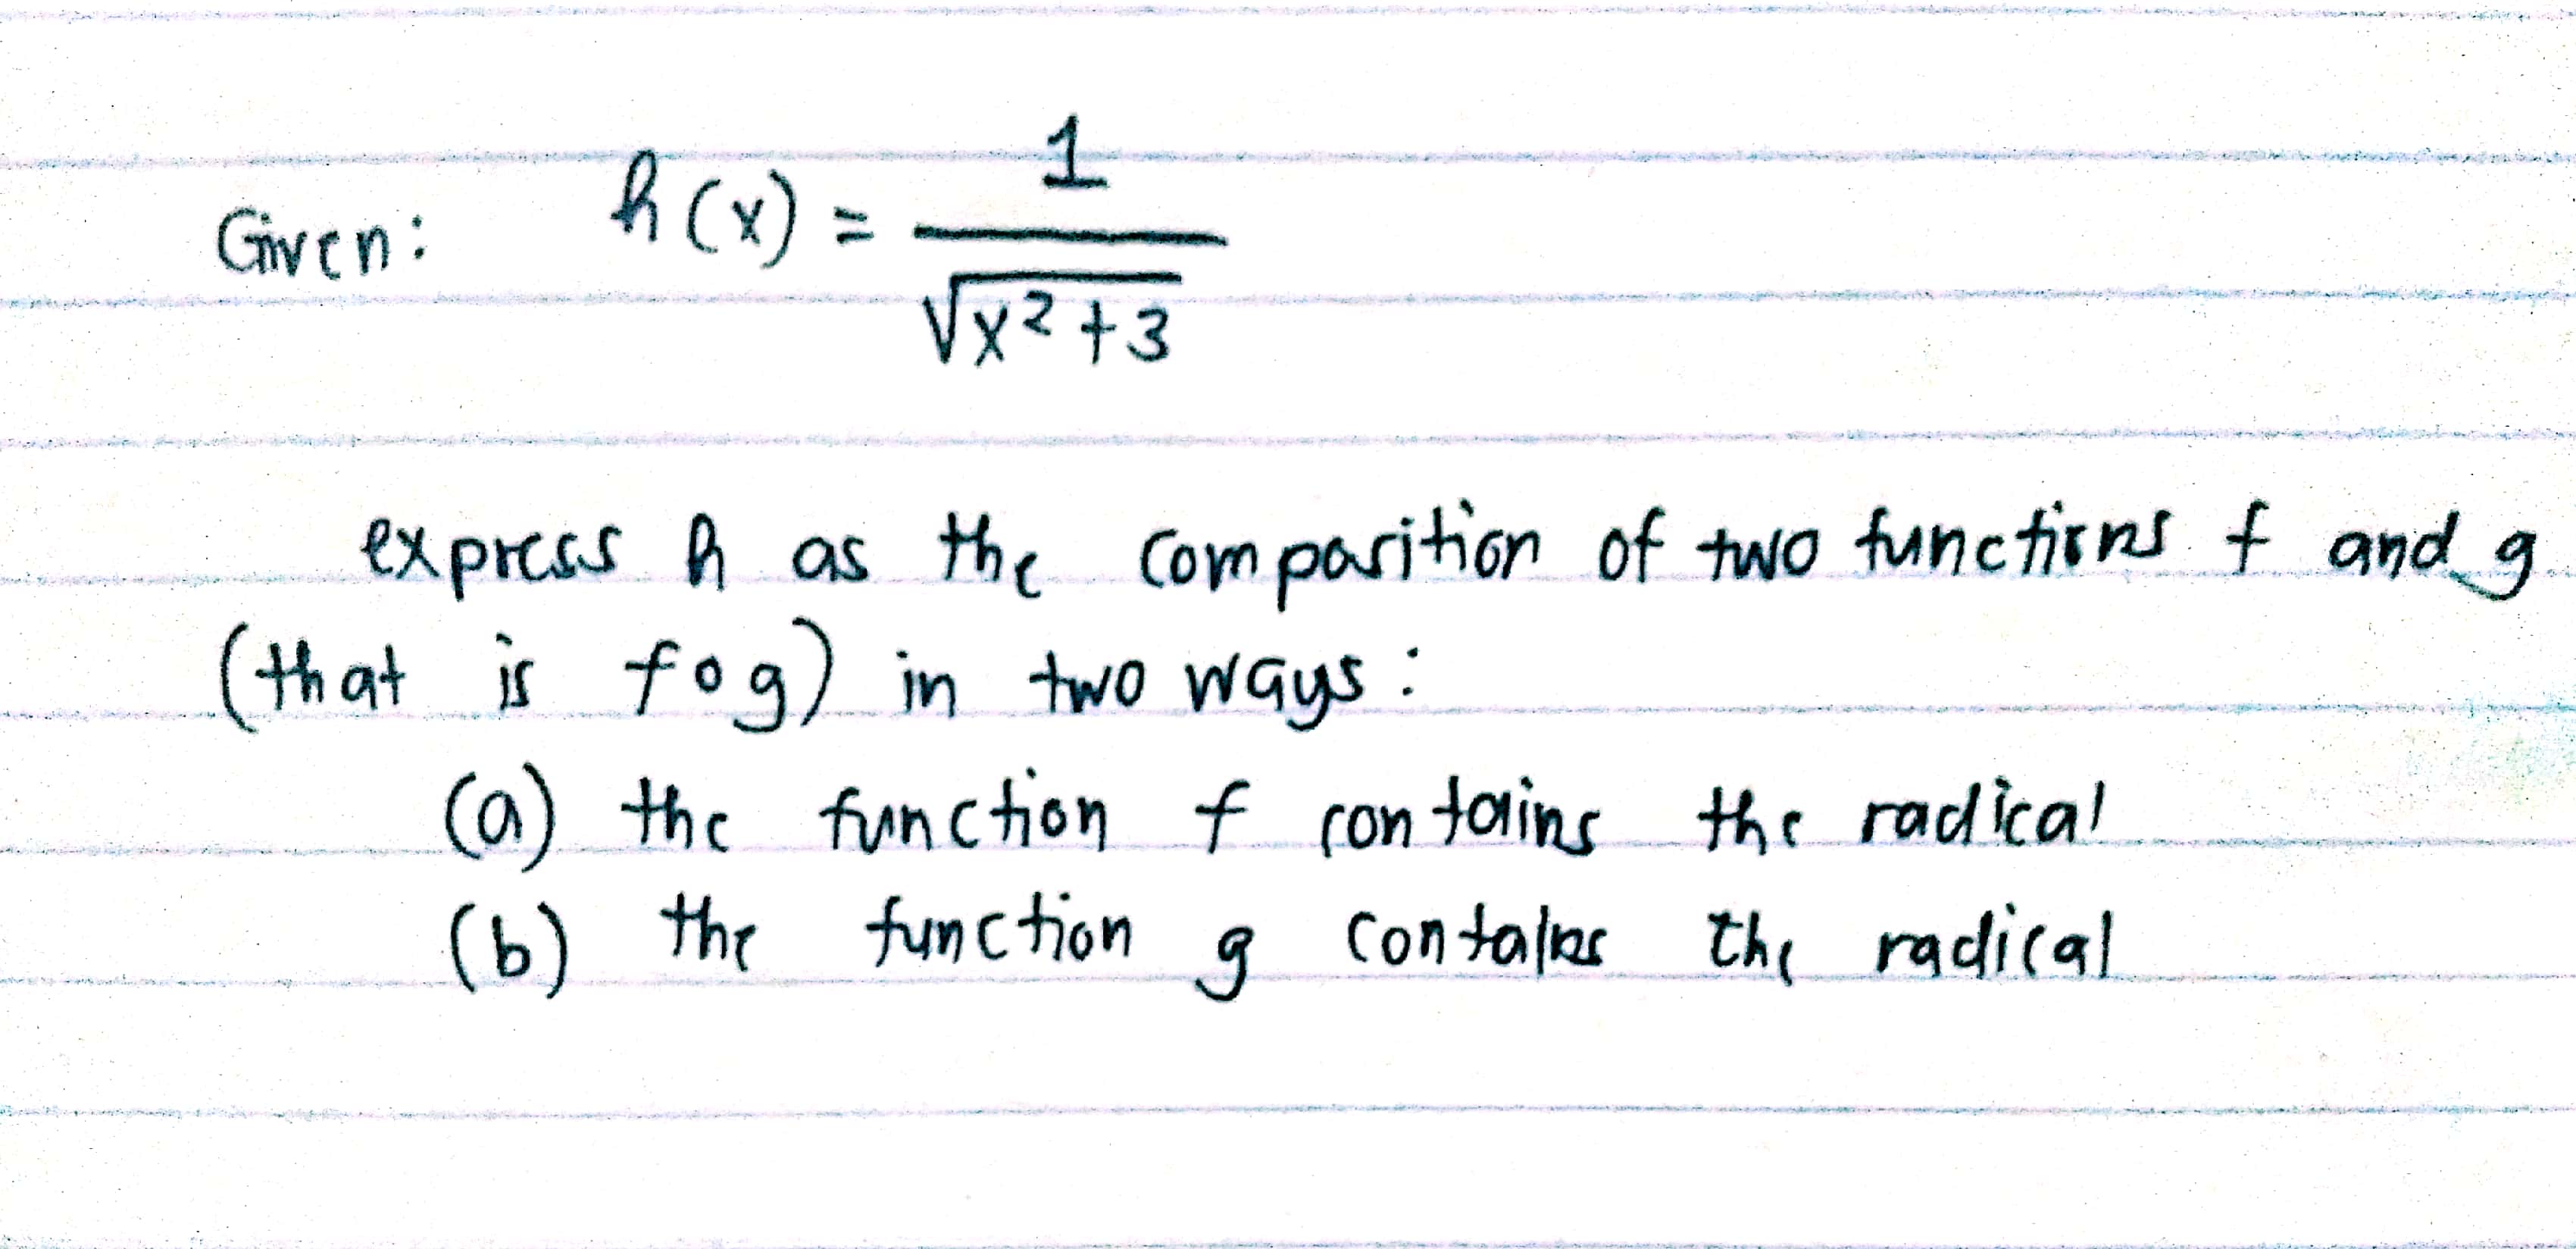 Given: h(x) = 1 / √(x² + 3)
express h as the composition of two functions f and g
(that is f∘g) in two ways:
(a) the function f contains the radical
(b) the function g contains the radical